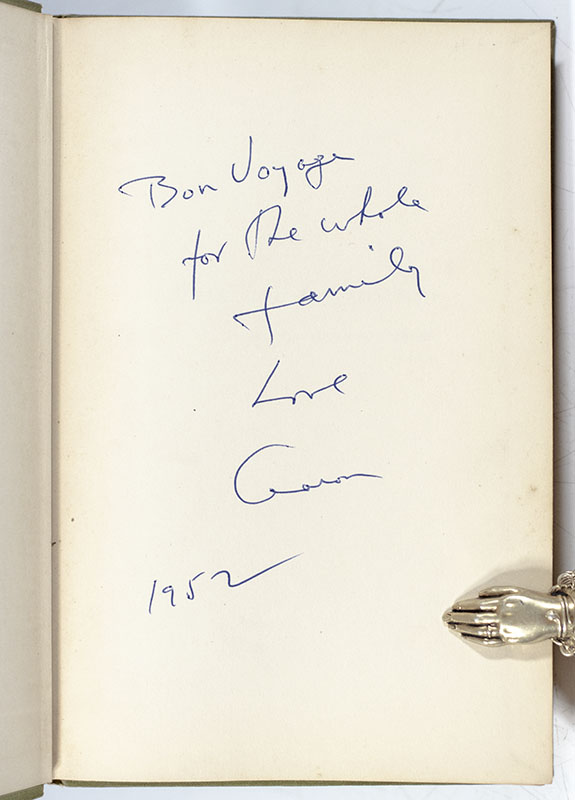 Bon Voyage
for the whole
family
Love
Aaron
1952